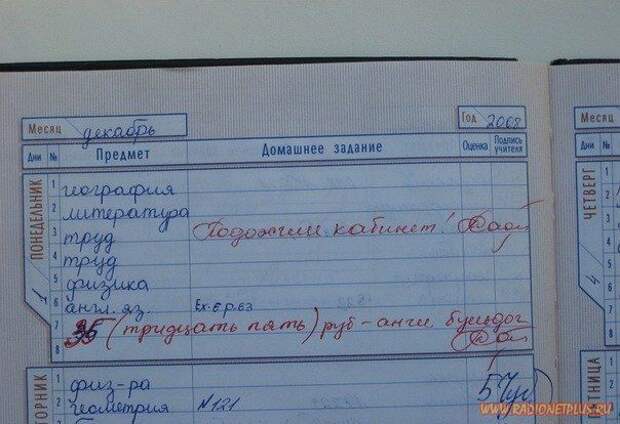 Месяц декабрь Год 2008
Дни № Предмет Домашнее задание Оценка Подпись учителя
ПОНЕДЕЛЬНИК 1
1 география
2 литература
3 труд Подожгли кабинет!
4 труд
5 физика
6 англ. яз. Ex. 6 p. 63
7 35 (тридцать пять) руб - англ. бульдог
8
ВТОРНИК
1 физ-ра 5
2 геометрия №121
Дни №
ЧЕТВЕРГ 4
1
2
3
4
5
6
7
8
ПЯТНИЦА
1
2
WWW.RADIONETPLUS.RU